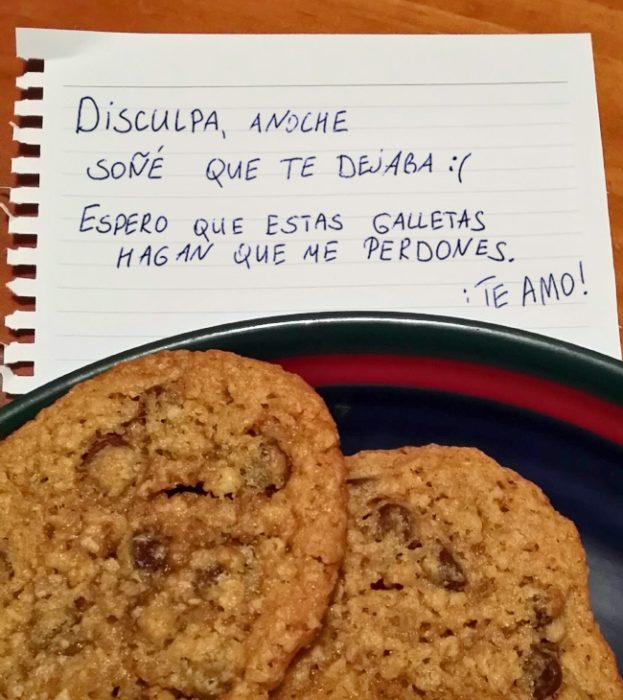 DISCULPA, ANOCHE
SOÑÉ QUE TE DEJABA :(
ESPERO QUE ESTAS GALLETAS
HAGAN QUE ME PERDONES.
¡TE AMO!